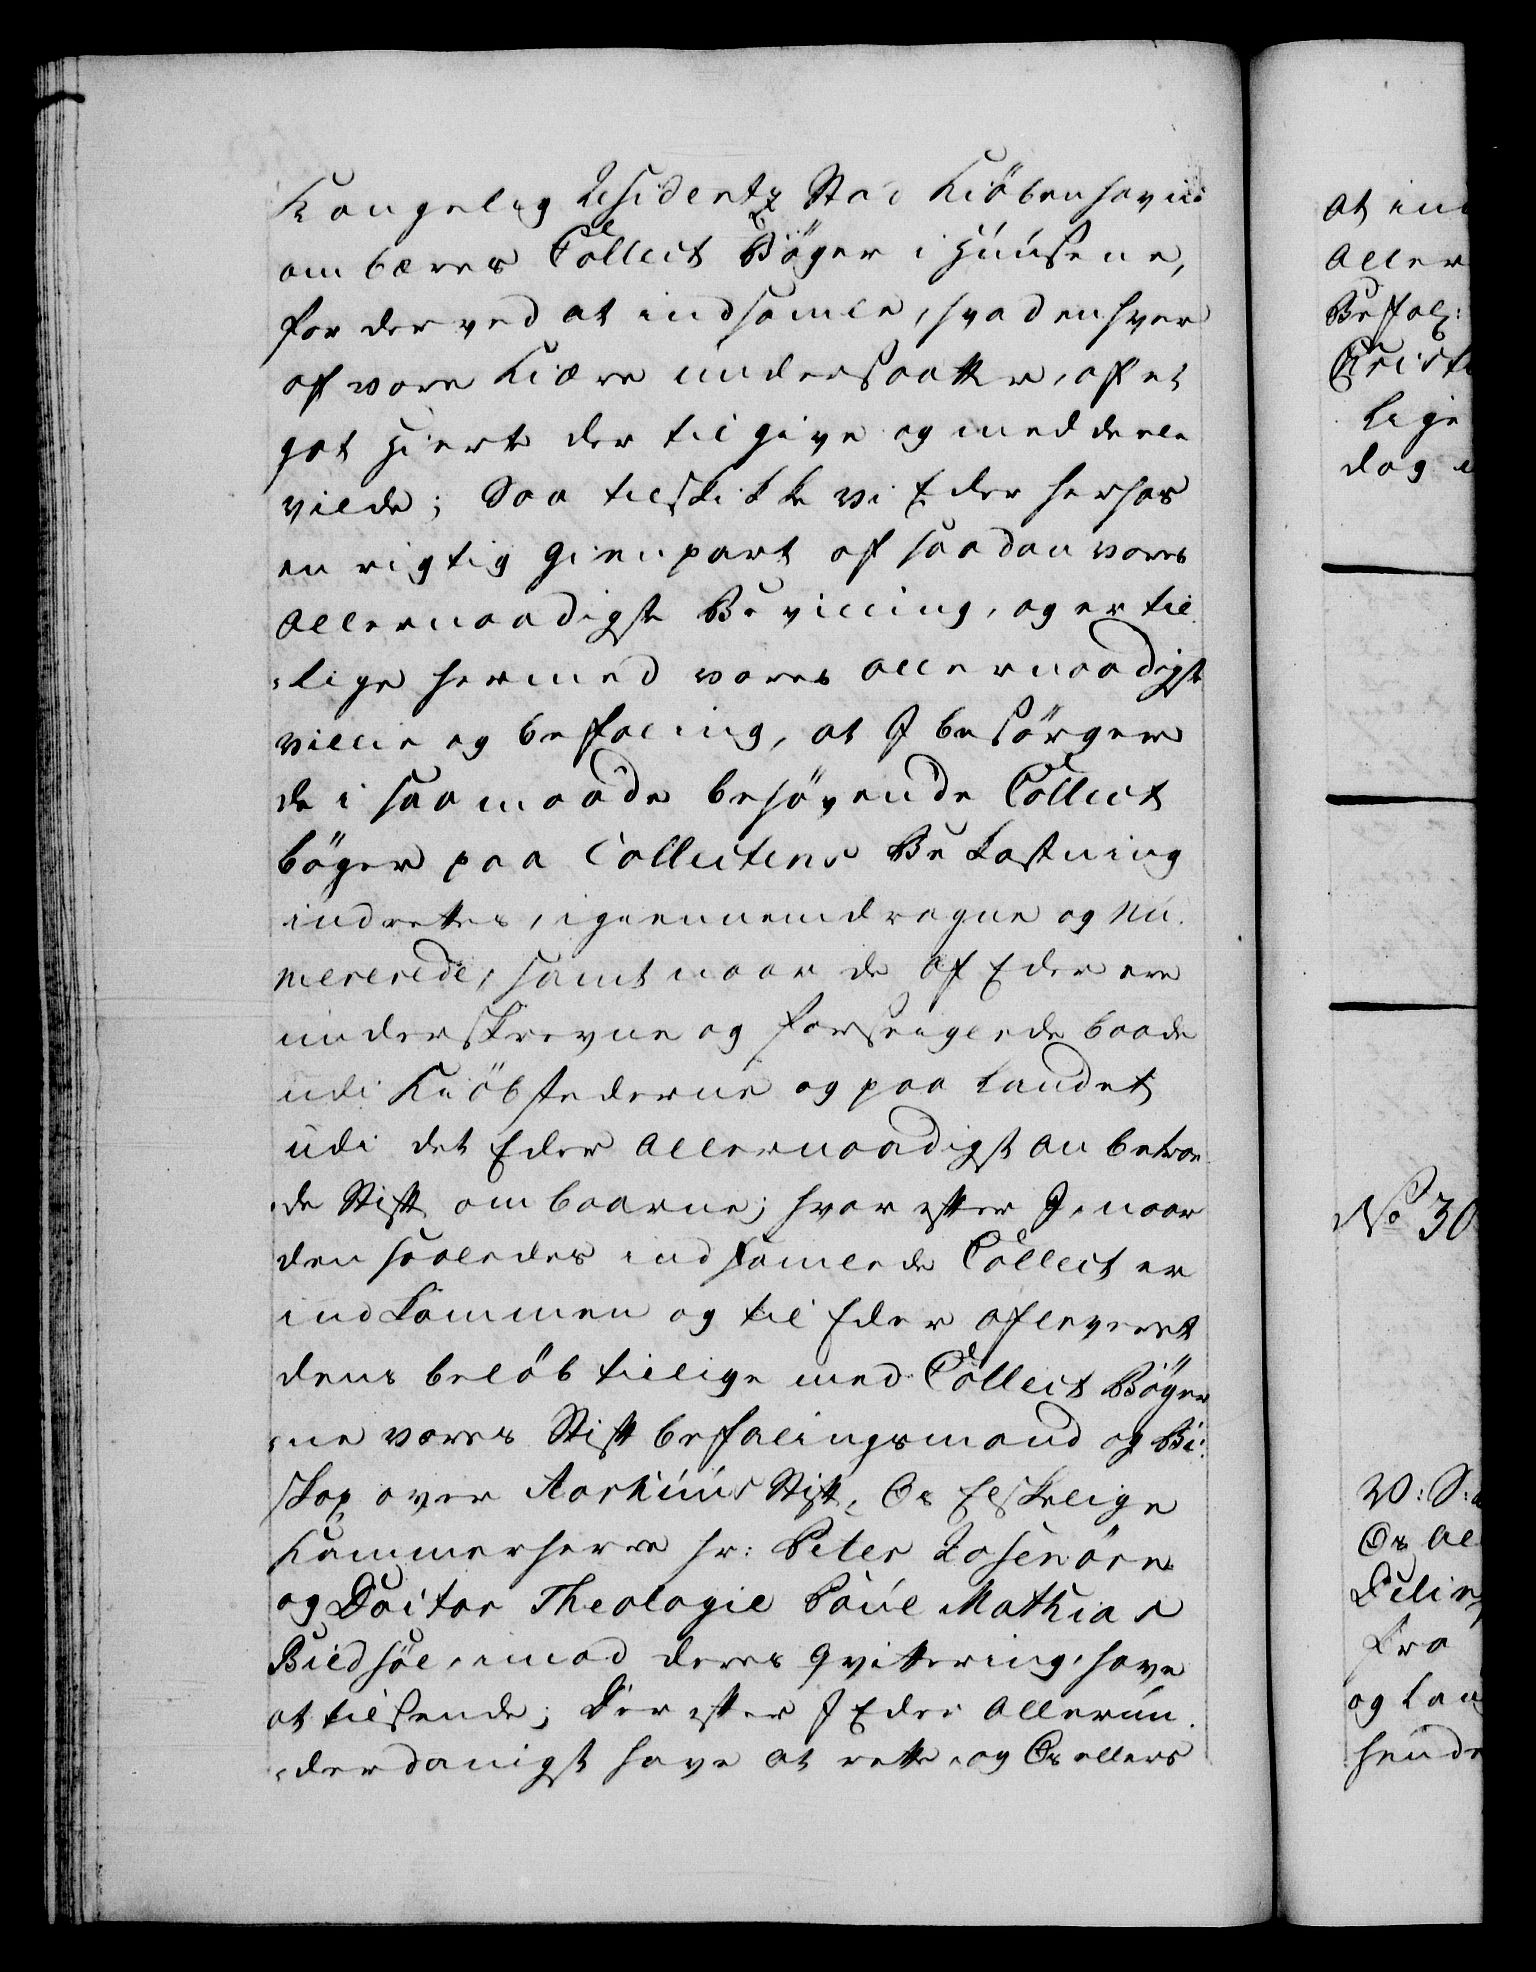 Kongelig Residentz Stad Kiöbenhavn
ombæres Collect Böger i Húúsene,
for derved at indsamle, hvad enhver
af vore Kiære úndersaatter, af et
got Hierte der til give og meddeele
vilde; Saa tilskikke vi Eder herhos
en rigtig Gienpart af saadan vores
Allernaadigste Bevilling, og er til
-lige hermed vores allernaadigste
villie og befaling, at I besörger
de i saa maade behövende Collect
böger paa Collectens Bekostning
indrettes, igiennemdragne og Nú-
mererede, samt naar de af Eder ere
únderskrevne og forseiglede baade
údi Kiöbstederne og paa Landet
údi det Eder Allernaadigst anbetroe
-de Stift ombaarne; hvor efter I, naar
den saaledes indsamlede Collect er
indkommen og til Eder afleveret
dens belöb tillige med Collect Böger
-ne vores Stiftbefalingsmand og Bi-
skop over Aarhúús Stift, Os Elskelige
Kammerherre Hr: Peter Rosenörn
og Doctor Theologie Poúl Mathias
Bildsöe, imod deres Qvittering, have
at tilsende; Der efter I Eder Allerún-
-derdanigst have at rette, og Os ellers
at ind
Aller
Befal:
Christi
Lige
dag
No 30
W: S:
Os al
Fra
og Lan
sende